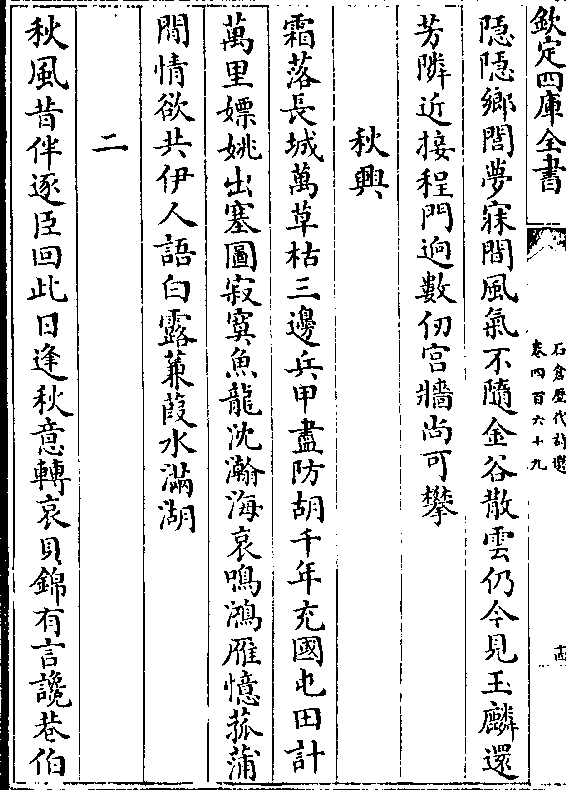 欽定四庫全書
石倉歷代詩選
卷四百六十九
十四
隠隠鄉閭夢寐間風氣不隨金谷散雲仍今見玉麟還
芳隣近接程門迥數仞宫牆尚可攀
秋興
霜落長城萬草枯三邊兵甲盡防胡千年充國屯田計
萬里嫖姚出塞圖寂寞魚龍沈瀚海哀鳴鴻雁憶菰蒲
閒情欲共伊人語白露蒹葭水滿湖
二
秋風昔伴逐臣回此日逢秋意轉哀貝錦有言讒巷伯